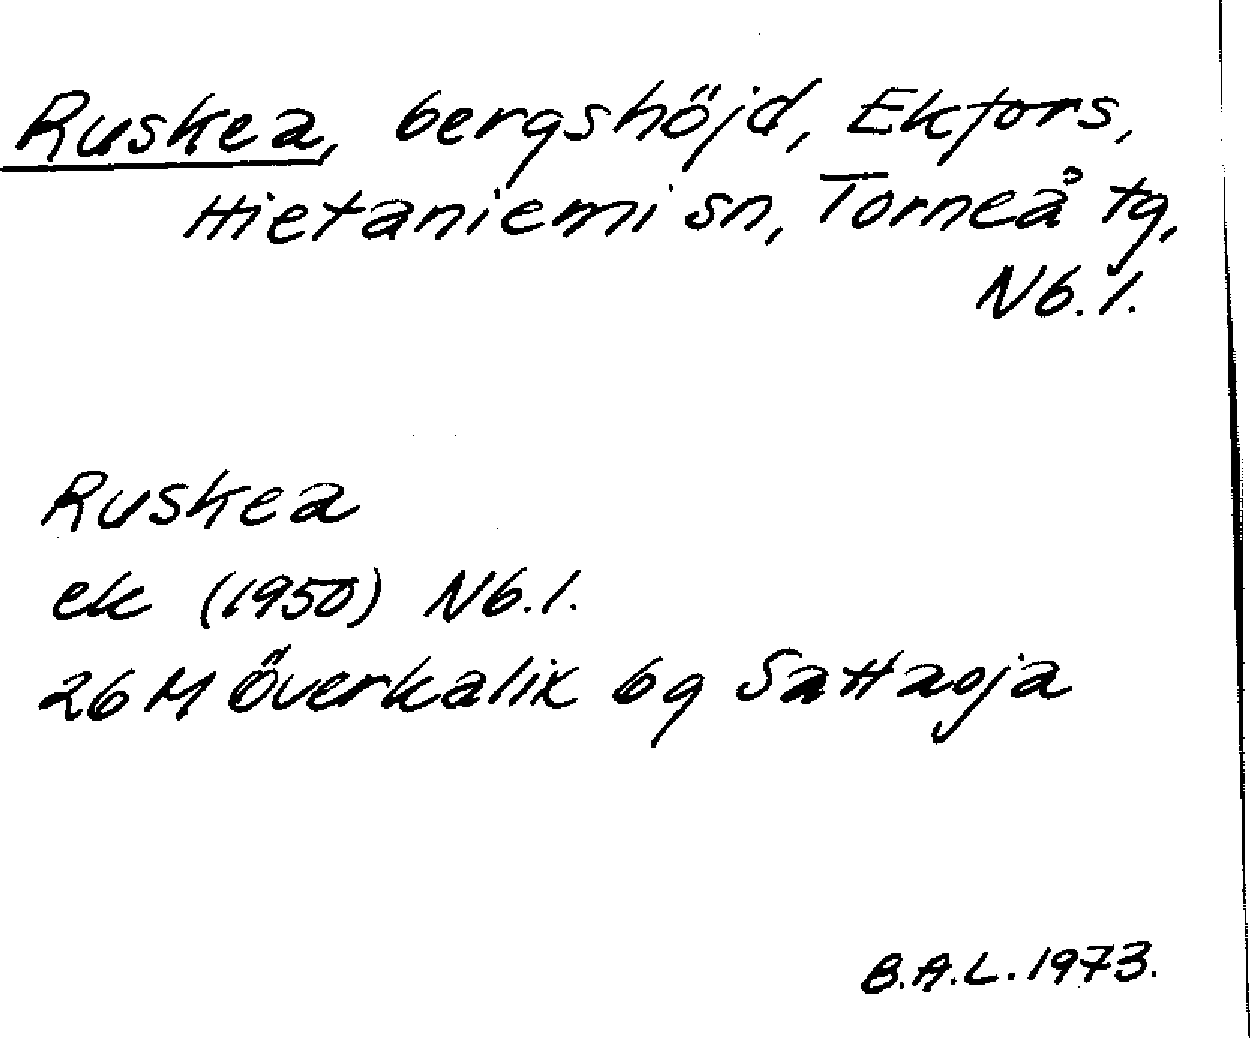 Ruskea, bergshöjd, Ekfors,
Hietaniemi sn, Torneå tg,
Nb. l.
Ruskea
ek (1950) Nb. l.
26 M Överkalix 6g Sattaoja
B.A.L. 1973.